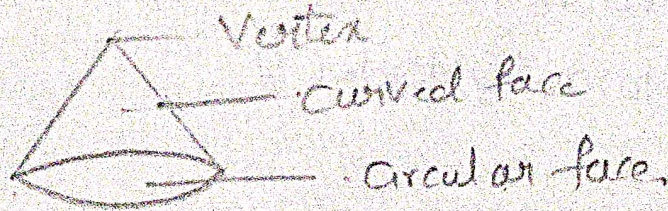 Vertex
curved face
circular face,